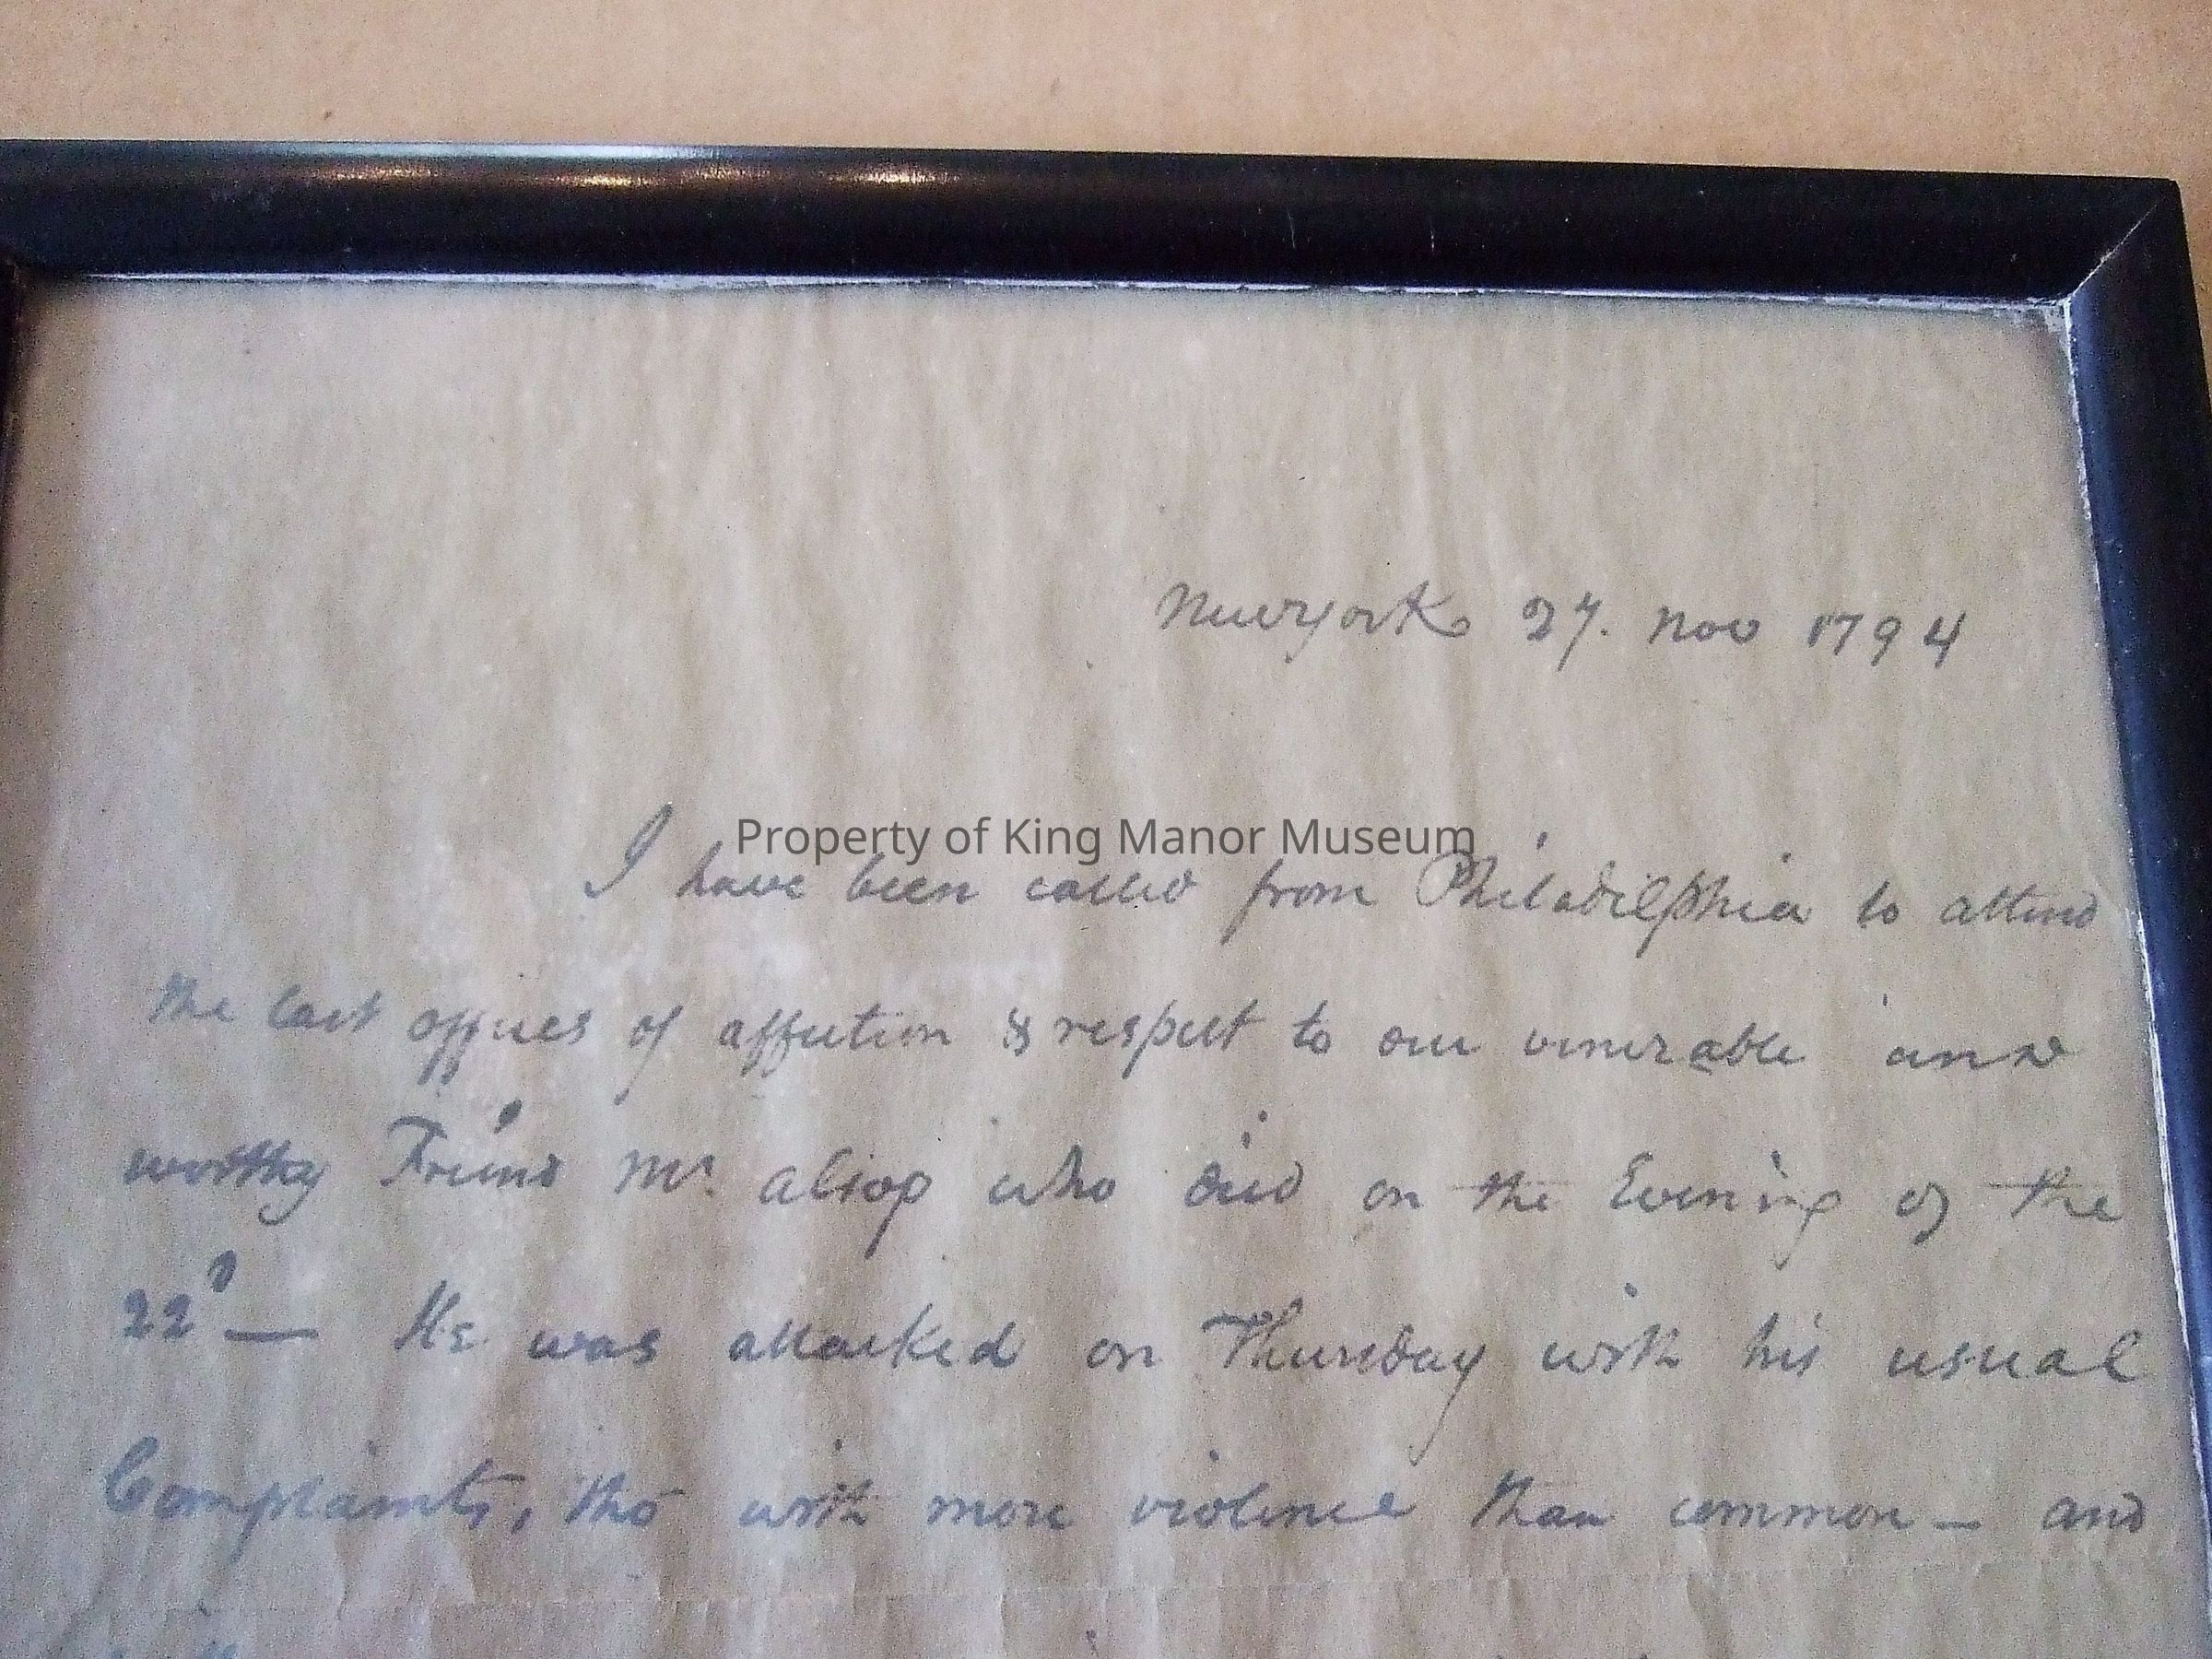 Newyork 27. Nov 1794
Property of King Manor Museum
I have been called from Philadelphia to attend
the last offices of affection & respect to our venerable and
worthy Friend Mr. Alsop who died on the Evening of the
22d — He was attacked on Thursday with his usual
Complaints, tho with more violence than common — and